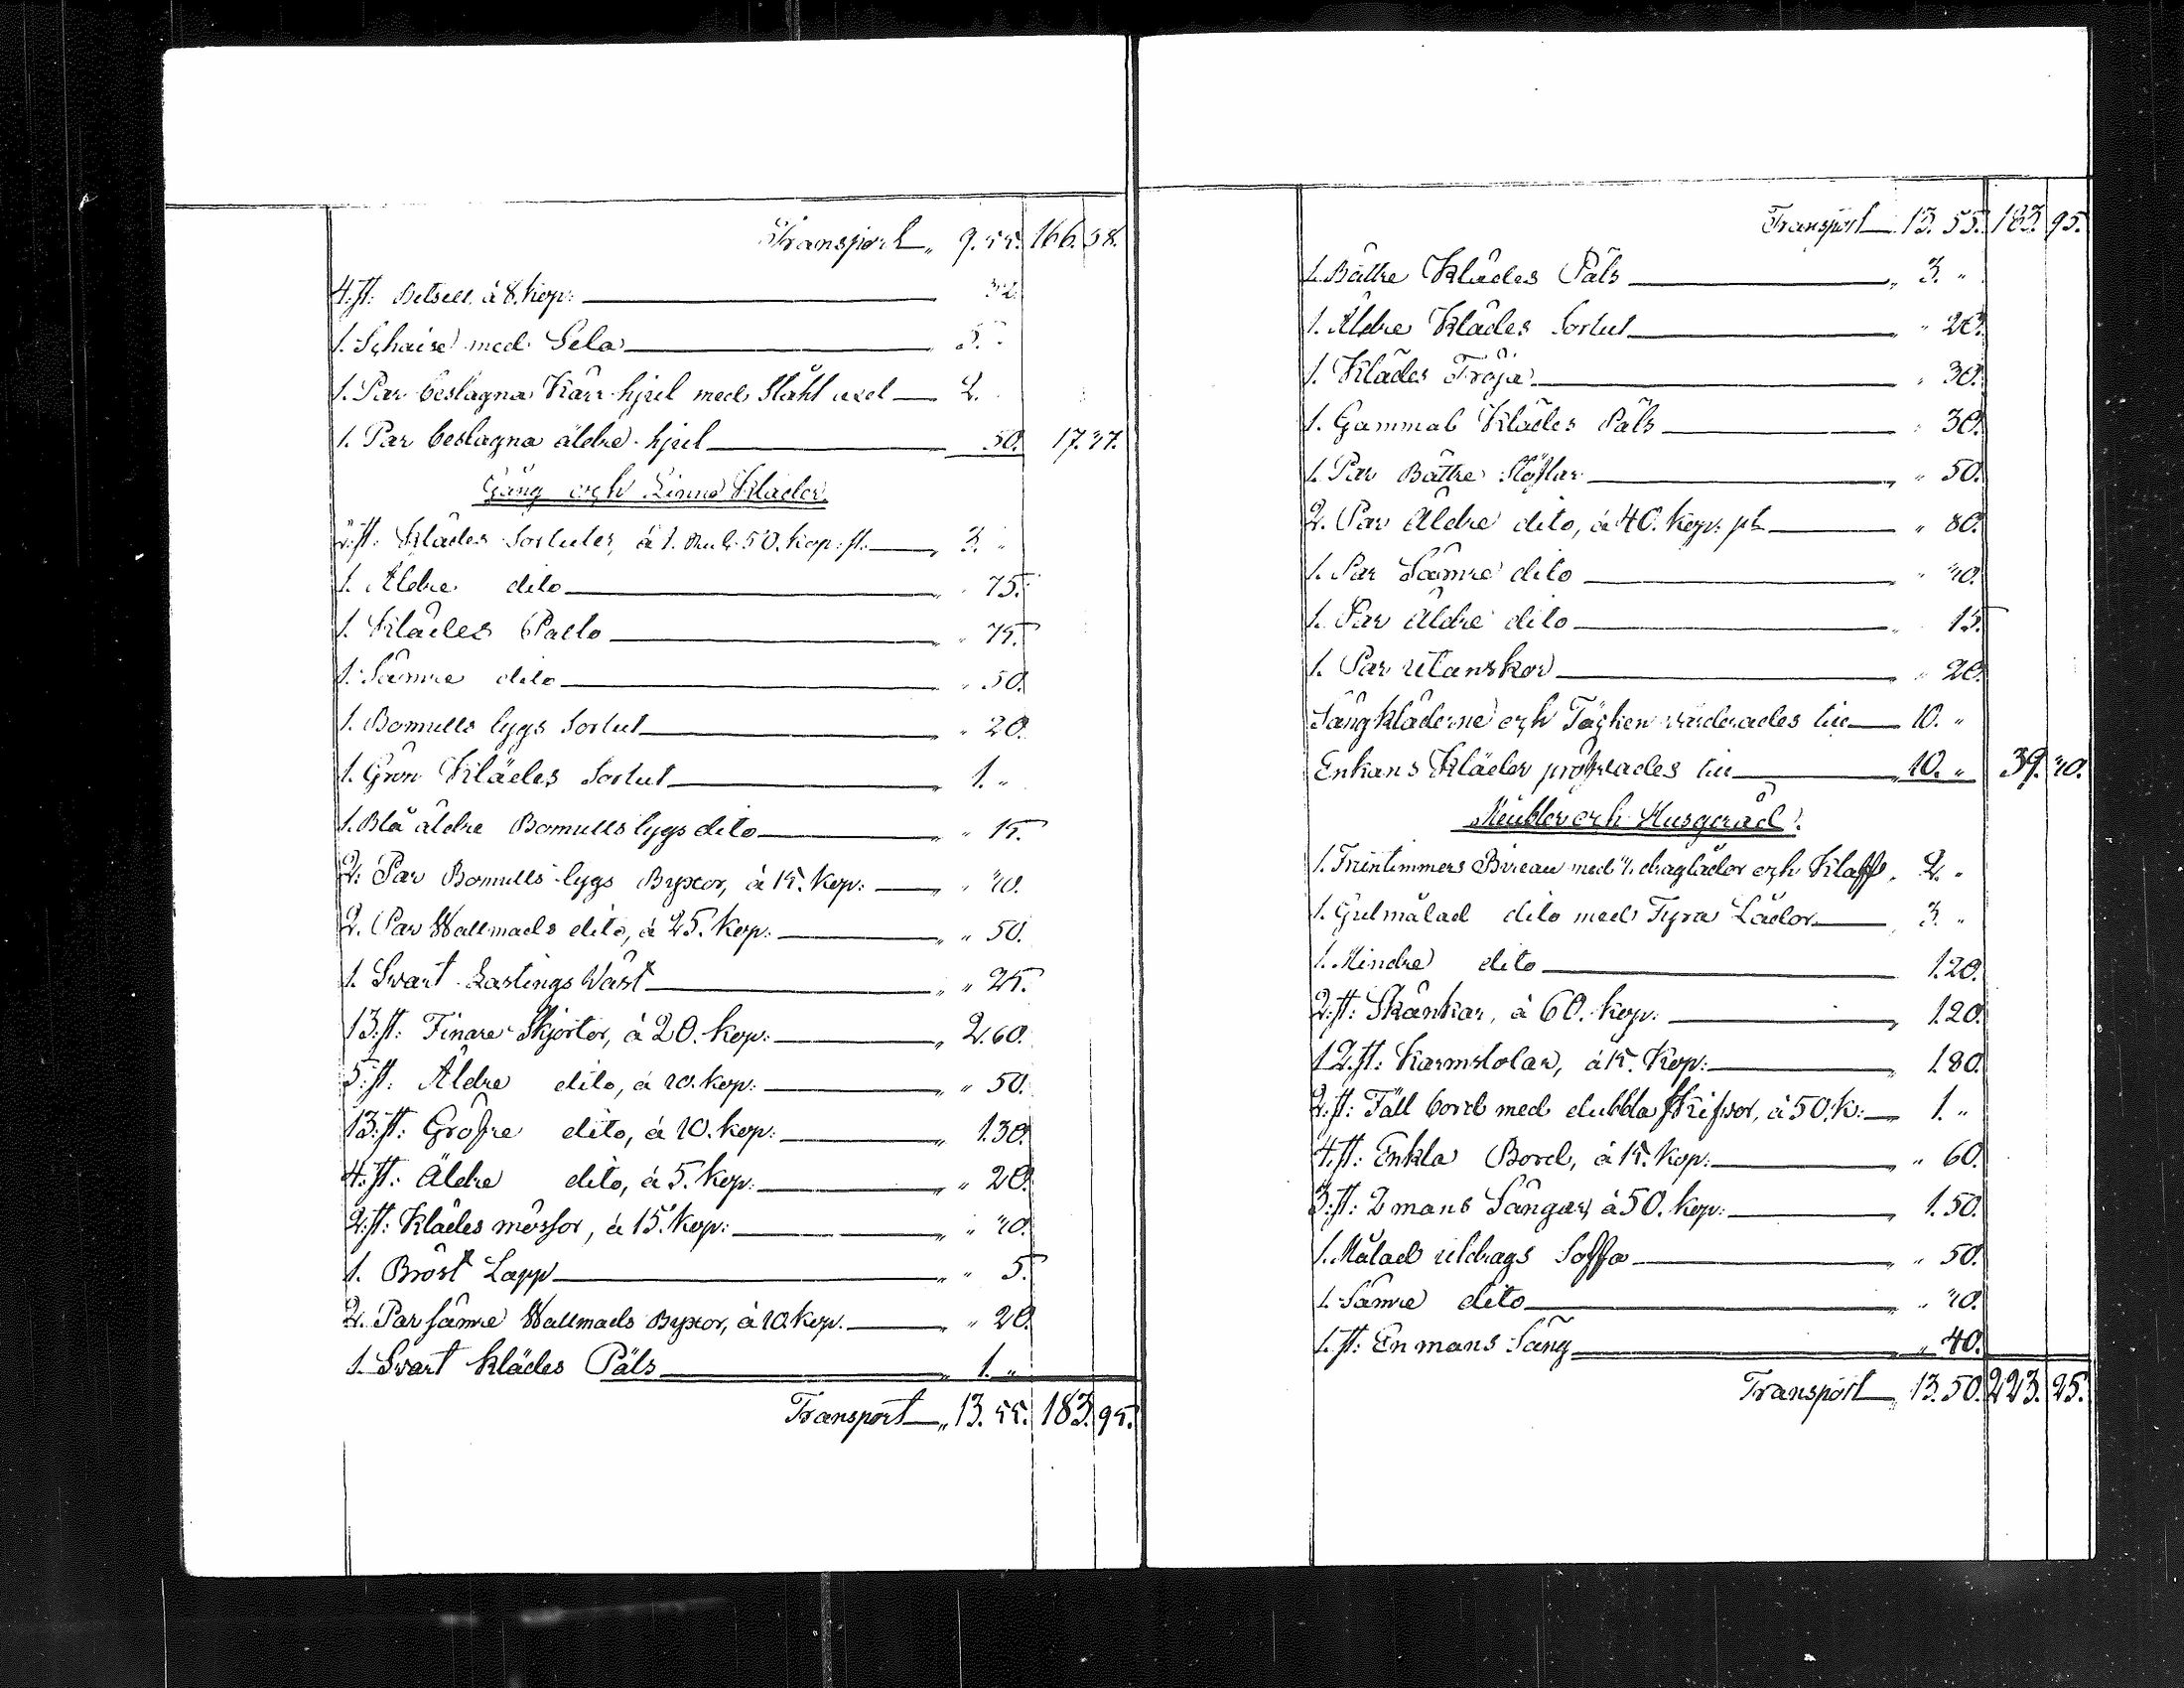 Transport „ 9. 55. 166. 58.
4. st: Betsell à 8. kop: 32.
1. Schaise med Sela 5. „
1. Par beslagna Kärr-hjul med Ståhl axel 2.
1. Par beslagna äldre hjul 50. 17. 37.
Gång och Linne Kläder.
2. st: Klädes Sortuter, à 1. Rub. 50. kop: st. „ 3. „
1. Äldre dito „ „ 75.
1. Klädes Palto „ „ 75.
1. Sämre dito „ „ 50.
1. Bomulls tygs Sortut „ „ 20.
1. Grön Klädes Sortut „ 1. „
1. Blå äldre Bomulls tygs dito „ „ 15.
2. Par Bomulls tygs Byxor, à 15. kop: „ „ 30.
2. Par Wallmads dito, à 25. kop: „ „ 50.
1. Svart Lastings Väst „ „ 25.
13. st: Finare Skjortor, à 20. kop: „ 2. 60.
5. st: Äldre dito, à 10. kop: „ „ 50.
13. st: Gröfre dito, à 10. kop: „ 1. 30.
4. st: Äldre dito, à 5. kop: „ „ 20.
2. st: Klädes mössor, à 15. kop: „ „ 30.
1. Bröst Lapp „ „ 5.
2. Par sämre Wallmads Byxor, à 10. kop. „ „ 20.
1. Svart klädes Päls „ 1. „
Transport „ 13. 55. 183. 95.
Transport 13. 55. 183. 95.
1. Bättre Klädes Päls „ 3. „
1. Äldre Klädes Sortut „ 20.
1. Klädes Tröja „ 30.
1. Gammal Klädes Päls „ 30.
1. Par Bättre Stöflar „ „ 50.
2. Par äldre dito, à 40. kop: pr „ „ 80.
1. Par Sämre dito „ „ 30.
1. Par äldre dito „ 15.
1. Par utanskor „ „ 20.
Sängkläderne och Täcken värderades till 10. „
Enkans Kläder pröfvades till „ 10. „ 39. 30.
Meubler och Husgeråd.
1. Fruntimmers Bireau med 4. draglådor och Klaff „ 2. „
1. Gulmålad dito med Fyra Lådor „ 3. „
1. Mindre dito 1. 20.
2. st: Skänkar, à 60. kop: „ 1. 20.
12. st: Karmstolar, à 15. kop: „ 1. 80.
2. st: Fäll bord med dubbla Skifvor, à 50. K: „ 1. „
4. st: Enkla Bord, à 15. kop: „ „ 60.
3. st: 2 mans Sängar, à 50. kop: „ 1. 50.
1. Målad utdrags Soffa „ „ 50.
1. Sämre dito „ „ 30.
1. st: En mans Säng „ 40.
Transport „ 13. 50. 223. 25.